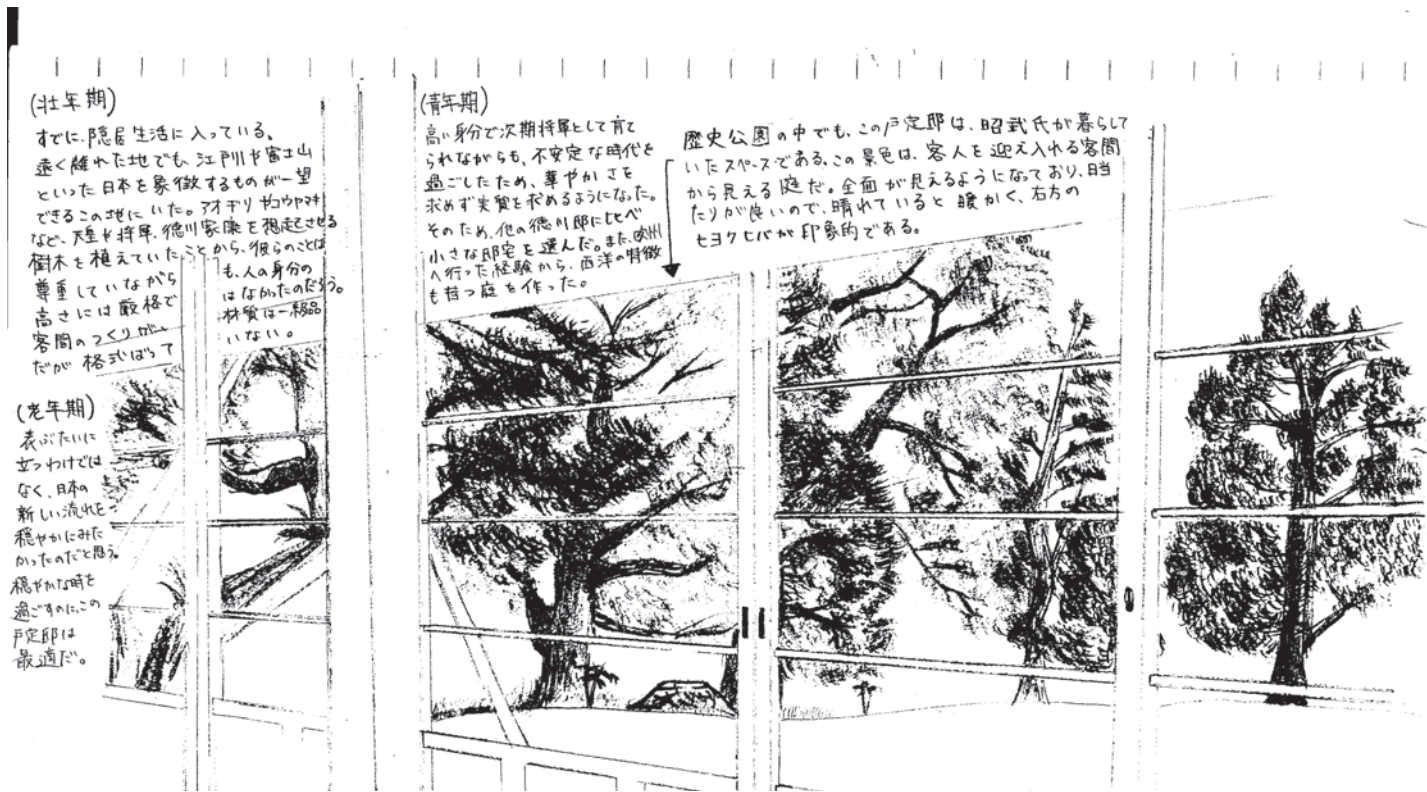 (壮年期)
すでに、隠居生活に入っている。
遠く離れた地でも、江戸川や富士山
といった日本を象徴するものが一望
できるこの地にいた。アオギリやコウヤマキ
など、天皇や将軍、徳川家康を想起させる
樹木を植えていたことから、彼らのことは
尊重していながらも、人の身分の
高さには厳格ではなかったのだろう。
客間のつくりが、材質は一級品
だが格式ばっていない。
(老年期)
表ぶたいに
立つわけでは
なく、日本の
新しい流れを
穏やかにみた
かったのだと思う。
穏やかな時を
過ごすのに、この
戸定邸は
最適だ。
(青年期)
高い身分で次期将軍として育て
られながらも、不安定な時代を
過ごしたため、華やかさを
求めず実質を求めるようになった。
そのため、他の徳川邸に比べ
小さな邸宅を選んだ。また、欧州
へ行った経験から、西洋の特徴
も持つ庭を作った。
歴史公園の中でも、この戸定邸は、昭武氏が暮らして
いたスペースである。この景色は、客人を迎え入れる客間
から見える庭だ。全面が見えるようになっており、日当
たりが良いので、晴れていると暖かく、右方の
ヒヨクヒバが印象的である。